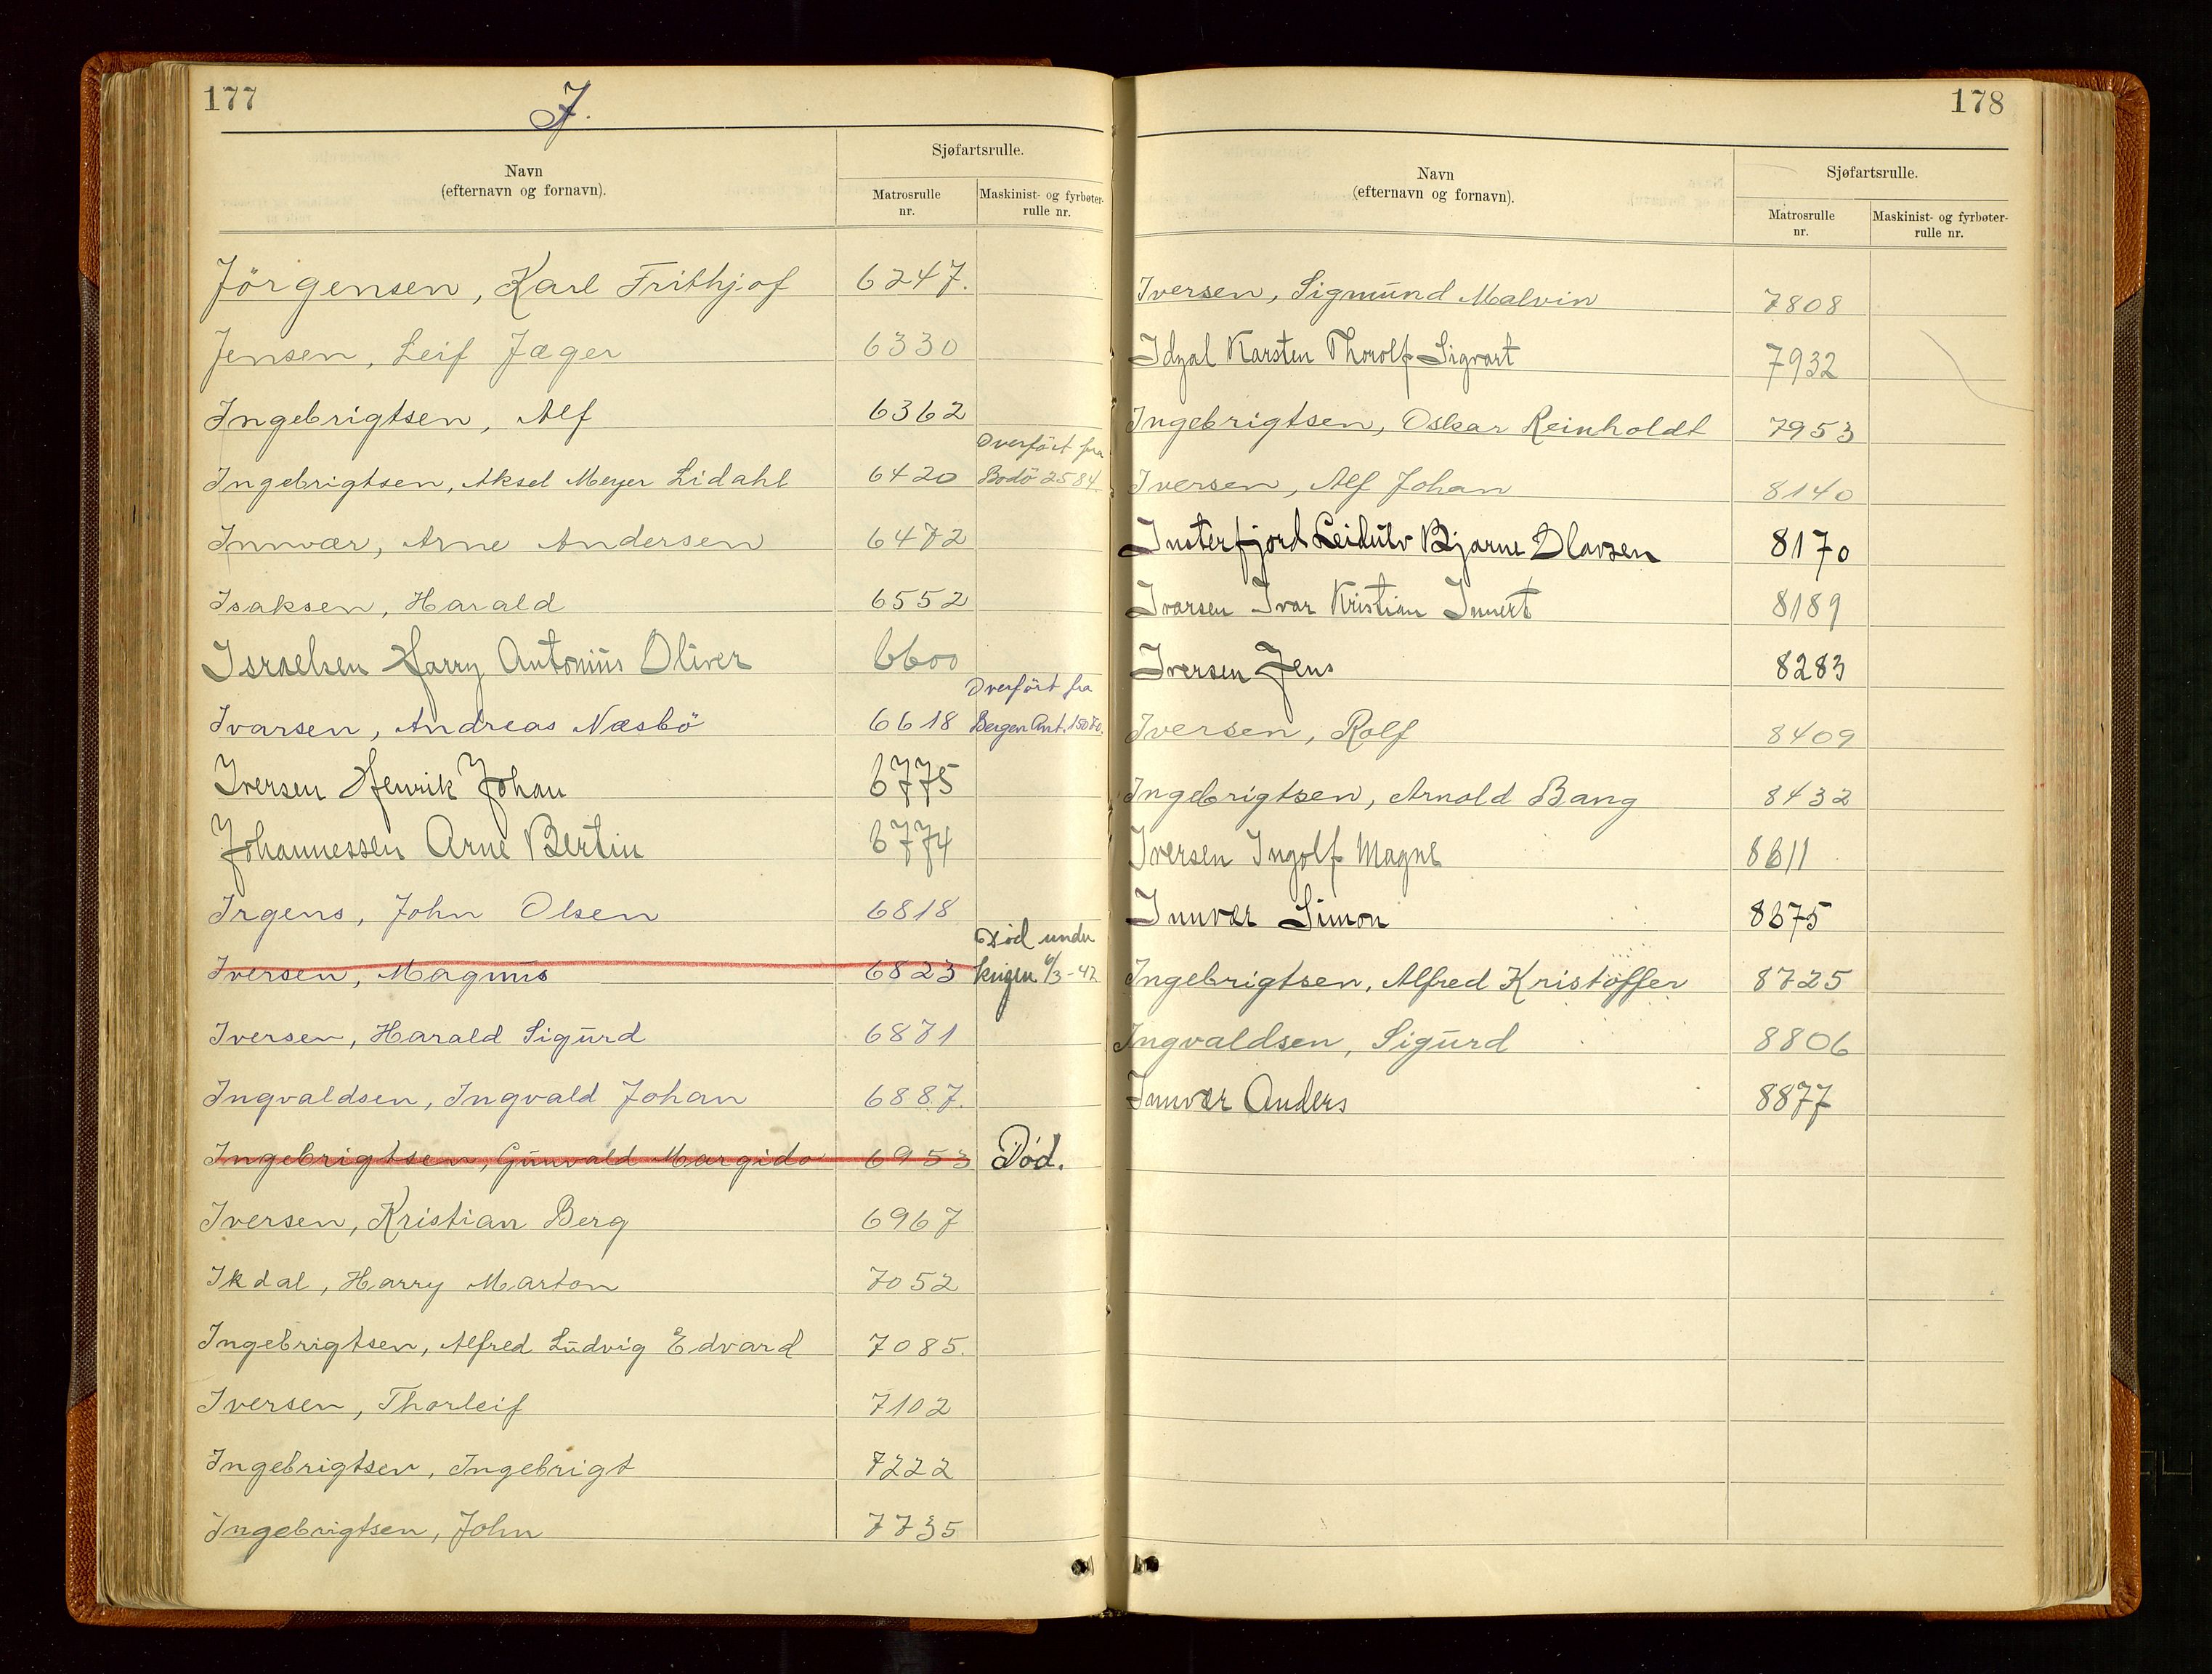 177
J.
Navn
(efternavn og fornavn).
Sjøfartsrulle.
Matrosrulle
nr.
Maskinist- og fyrbøter-
rulle nr.
Jörgensen, Karl Frithjof 6247.
Jensen, Leif Jæger 6330
Ingebrigtsen, Alf 6362
Overfört fra
Ingebrigtsen, Aksel Meyer Lidahl 6420 Bodö 2584
Innvær, Arne Andersen 6472
Isaksen, Harald 6552
Israelsen Harry Antonius Oliver 6600
Overfört fra
Ivarsen, Andreas Næsbö 6618 Bergen Ant. 15070.
Iversen Henrik Johan 6775
Johannessen Arne Bertin 6774
Irgens, John Olsen 6818
Död under
Iversen, Magnus 6823 krigen 6/3-42
Iversen, Harald Sigurd 6871
Ingvaldsen, Ingvald Johan 6887.
Ingebrigtsen, Gunvald Margido 6953 Död.
Iversen, Kristian Berg 6967
Ikdal, Harry Marton 7052
Ingebrigtsen, Alfred Ludvig Edvard 7085.
Iversen, Thorleif 7102
Ingebrigtsen, Ingebrigt 7222
Ingebrigtsen, John 7735
178
Navn
(efternavn og fornavn).
Sjøfartsrulle.
Matrosrulle
nr.
Maskinist- og fyrbøter-
rulle nr.
Iversen, Sigmund Malvin 7808
Idzal Karsten Thorolf Sigvart 7932
Ingebrigtsen, Oskar Reinholdt 7953
Iversen, Alf Johan 8140
Insterfjord Leidulv Bjarne Olavsen 8170
Ivarsen Ivar Kristian Innert 8189
Iversen Jens 8283
Iversen, Rolf 8409
Ingebrigtsen, Arnold Bang 8432
Iversen Ingolf Magne 8611
Innvær Simon 8675
Ingebrigtsen, Alfred Kristoffer 8725
Ingvaldsen, Sigurd 8806
Innvær Anders 8877